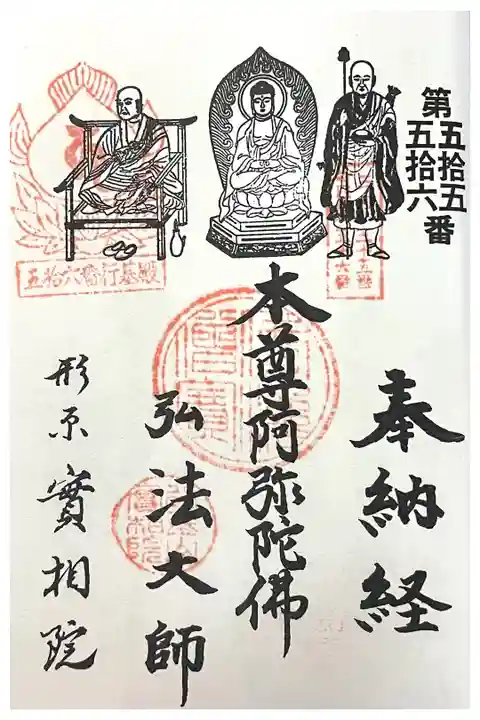 第五拾五
五拾六番
奉納経
本尊阿弥陀佛
弘法大師
形原實相院
五拾六番行基殿